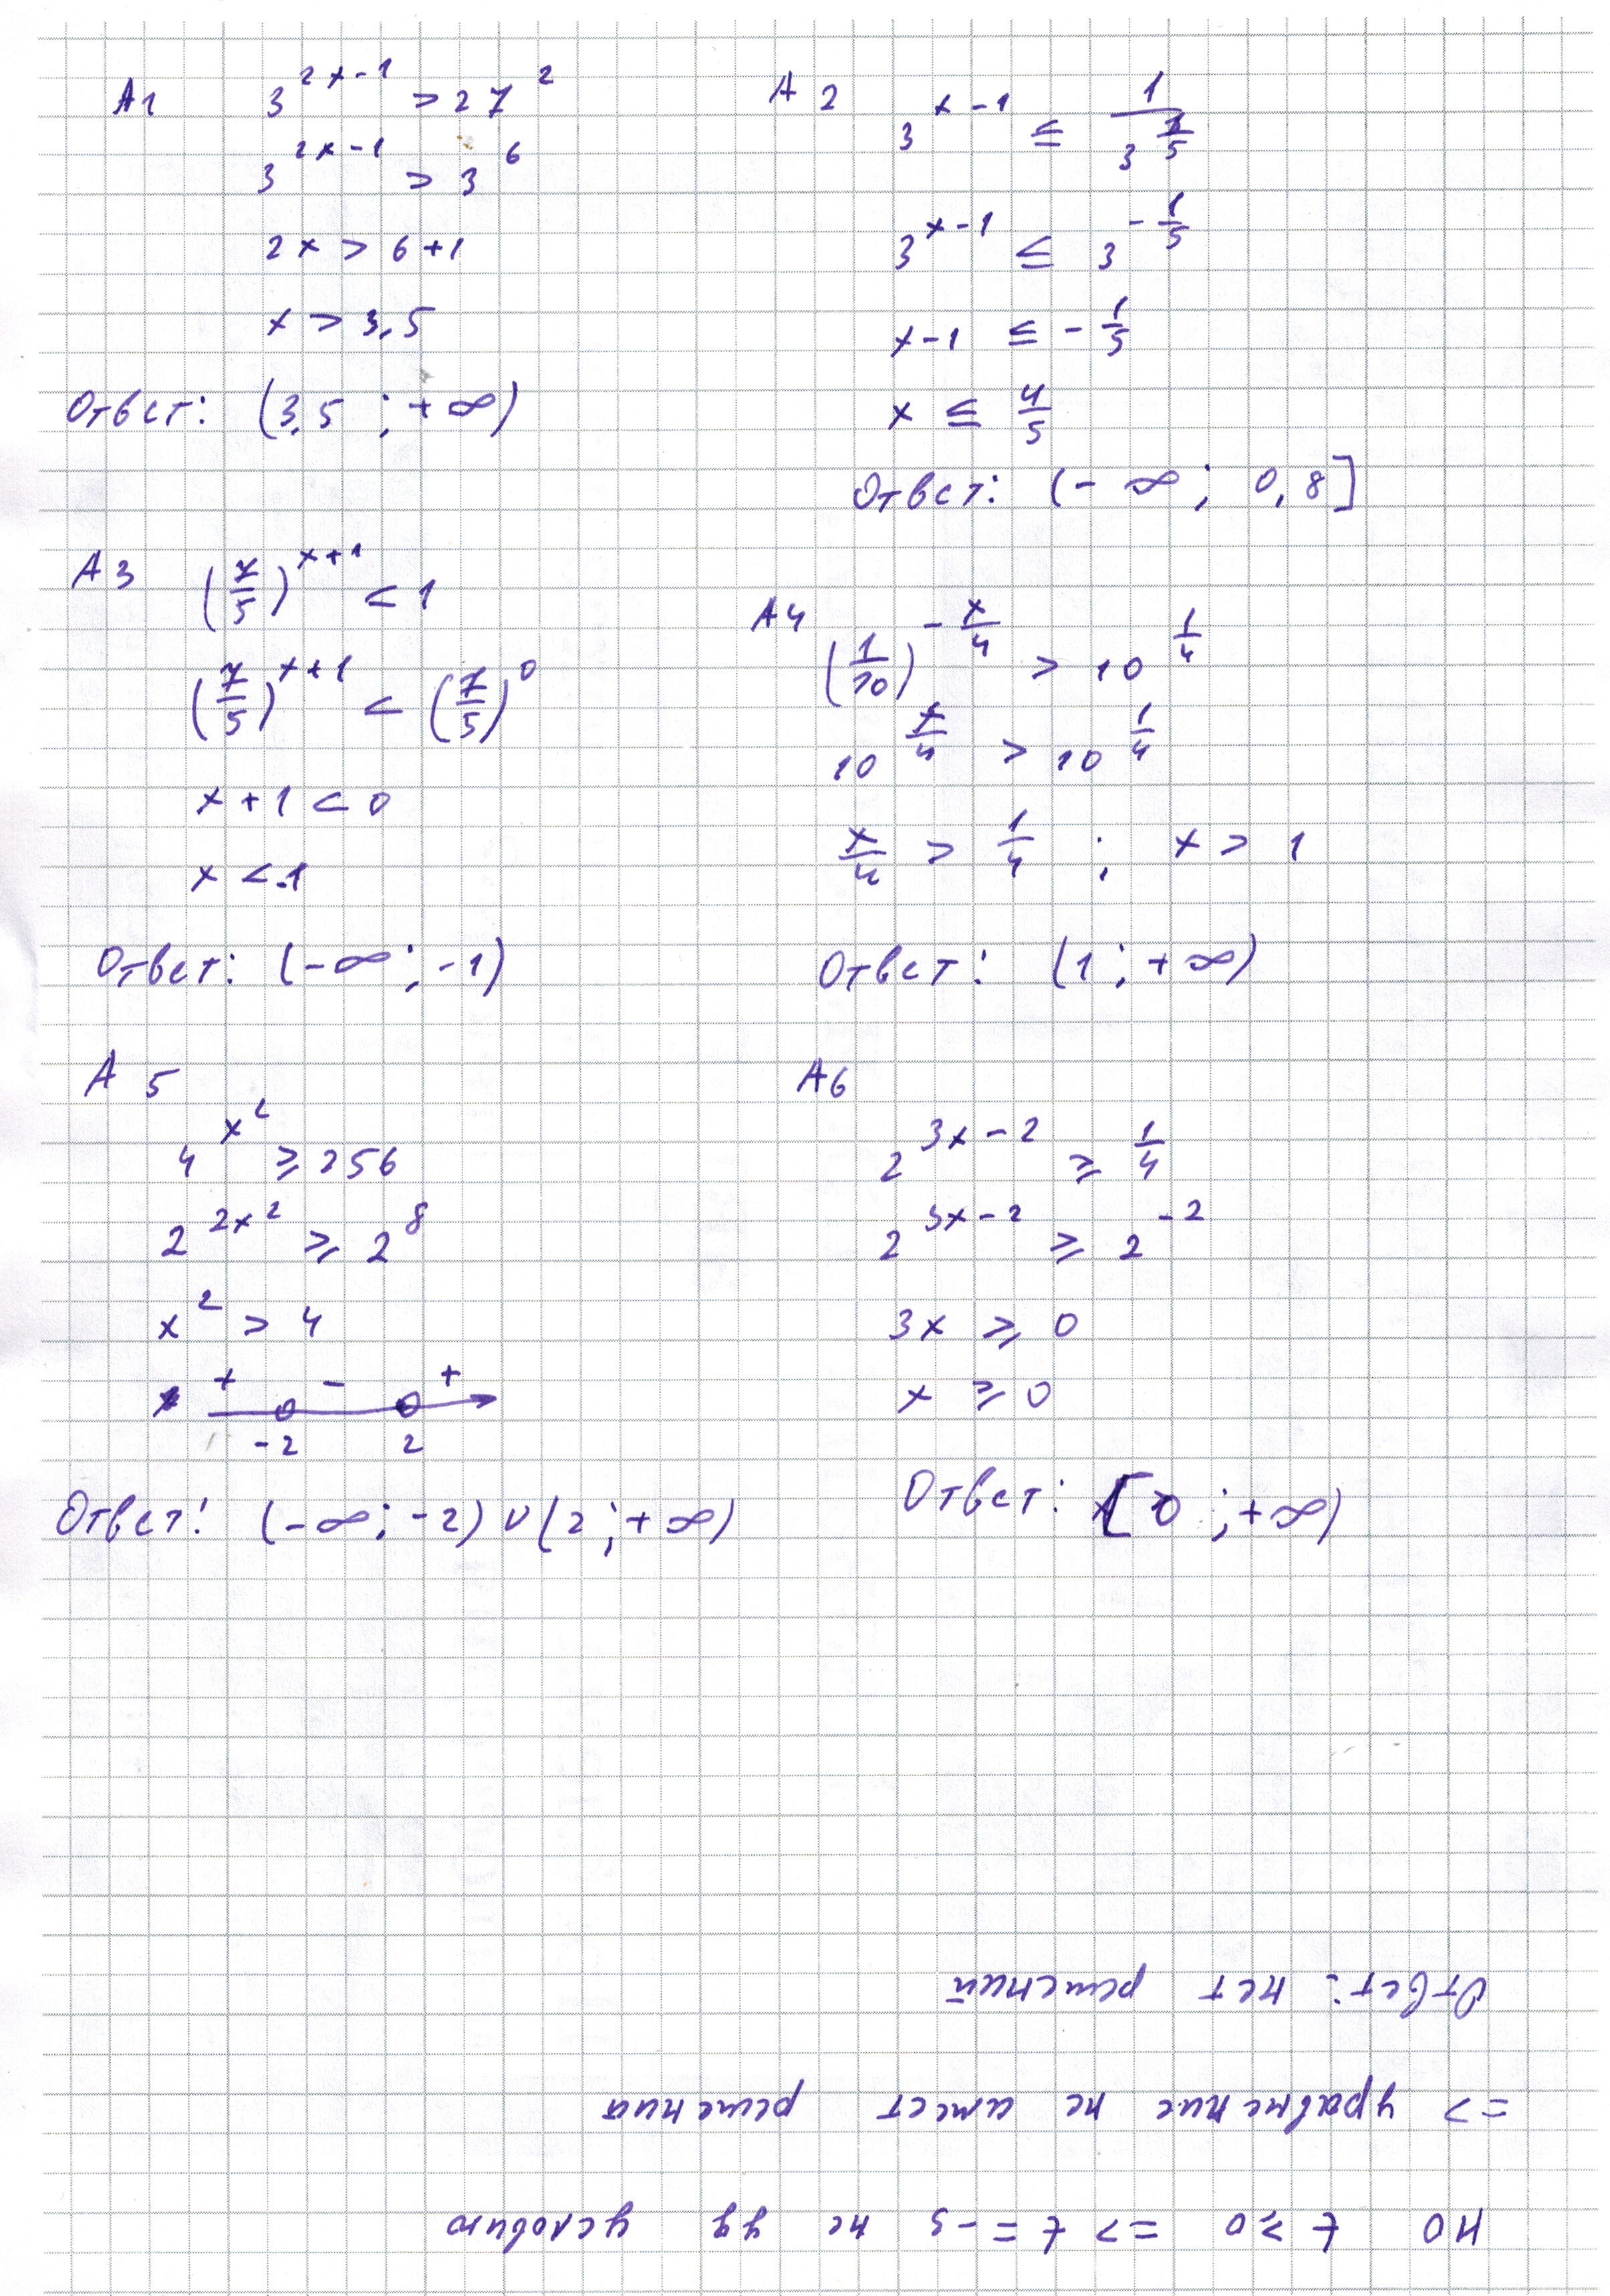 А1
3^(2x-1) > 27^2
3^(2x-1) > 3^6
2x > 6+1
x > 3,5
Ответ: (3,5 ; +∞)
А2
3^(x-1) ≤ 1/3^(1/5)
3^(x-1) ≤ 3^(-1/5)
x-1 ≤ -1/5
x ≤ 4/5
Ответ: (-∞; 0,8]
А3
(7/5)^(x+1) < 1
(7/5)^(x+1) < (7/5)^0
x+1 < 0
x < -1
Ответ: (-∞; -1)
А4
(1/10)^(-x/4) > 10^(1/4)
10^(x/4) > 10^(1/4)
x/4 > 1/4 ; x > 1
Ответ: (1; +∞)
А5
4^(x^2) ≥ 256
2^(2x^2) ≥ 2^8
x^2 > 4
+ - +
-2 2
Ответ: (-∞; -2) ∪ (2; +∞)
А6
2^(3x-2) ≥ 1/4
2^(3x-2) ≥ 2^(-2)
3x ≥ 0
x ≥ 0
Ответ: [0 ; +∞)
НО t ≥ 0 => t = -5 не уд условию
=> уравнение не имеет решения
Ответ: нет решений